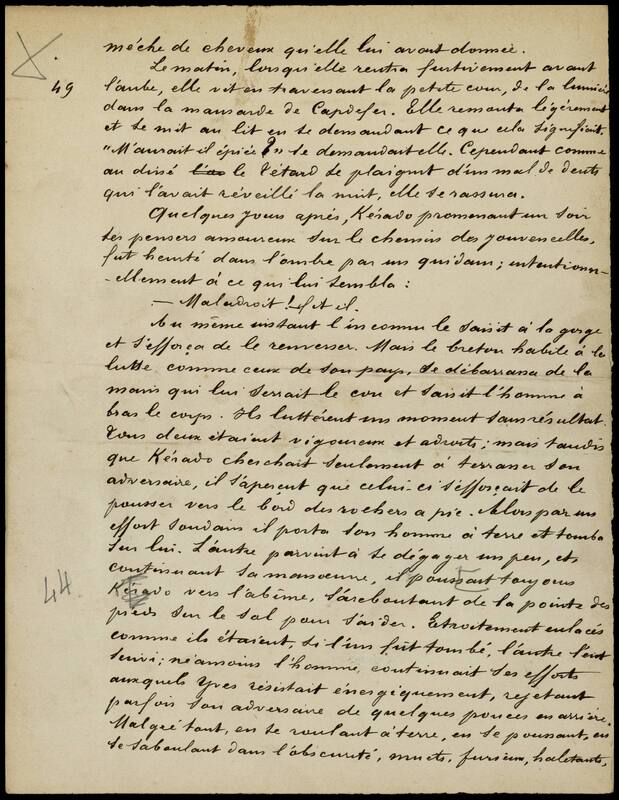 méche de cheveux qu'elle lui avait donnée.
Le matin, lorsqu'elle rentra furtivement avant
49
l'aube, elle vit en traversant la petite cour, de la lumière
dans la mansarde de Capdefer. Elle remonta légérement
et se mit au lit en se demandant ce que cela signifiait.
"M'aurait il épiée ?" se demandait elle. Cependant comme
au diné le Pétard se plaignit d'un mal de dents
qui l'avait réveillé la nuit, elle se rassura.
Quelques jours après, Kérado promenant un soir
ses pensers amoureux sur le chemin des jouvencelles,
fut heurté dans l'ombre par un quidam; intentionn-
-ellement à ce qui lui sembla:
— Maladroit ! fit il.
Au même instant l'inconnu le saisit à la gorge
et s'efforça de le renverser. Mais le breton habile à la
lutte comme ceux de son pays, se débarrassa de la
main qui lui serrait le cou et saisit l'homme à
bras le corps. Ils luttérent un moment sans résultat.
Tous deux étaient vigoureux et adroits; mais tandis
que Kérado cherchait seulement à terrasser son
adversaire, il s'aperçut que celui-ci s'efforçait de le
pousser vers le bord des rochers a pic. Alors par un
effort soudain il porta son homme à terre et tomba
sur lui. L'autre parvint à se dégager un peu, et
continuant sa manœuvre, il poussait toujours
44
Kérado vers l'abîme, s'arcboutant de la pointe des
pieds sur le sol pour s'aider. Etroitement enlacés
comme ils étaient, si l'un fût tombé, l'autre l'eut
suivi; néamoins l'homme, continuait ses efforts
auxquels Yves résistait énergiquement, rejetant
parfois son adversaire de quelques pouces en arrière.
Malgré tout, en se roulant à terre, en se poussant, en
se saboulant dans l'obscurité, muets, furieux, haletants,